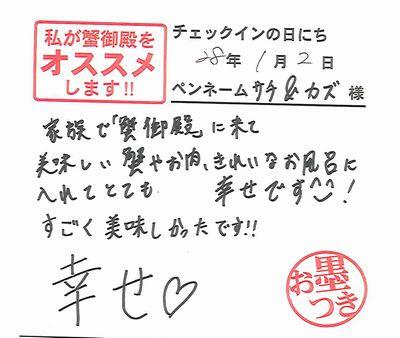 私が蟹御殿を
オススメ
します!!
チェックインの日にち
28年 1月 2日
ペンネーム サチ&カズ 様
家族で「蟹御殿」に来て
美味しい蟹やお肉、きれいなお風呂に
入れてとても 幸せです^^!
すごく美味しかったです!!
幸せ♡
お墨つき